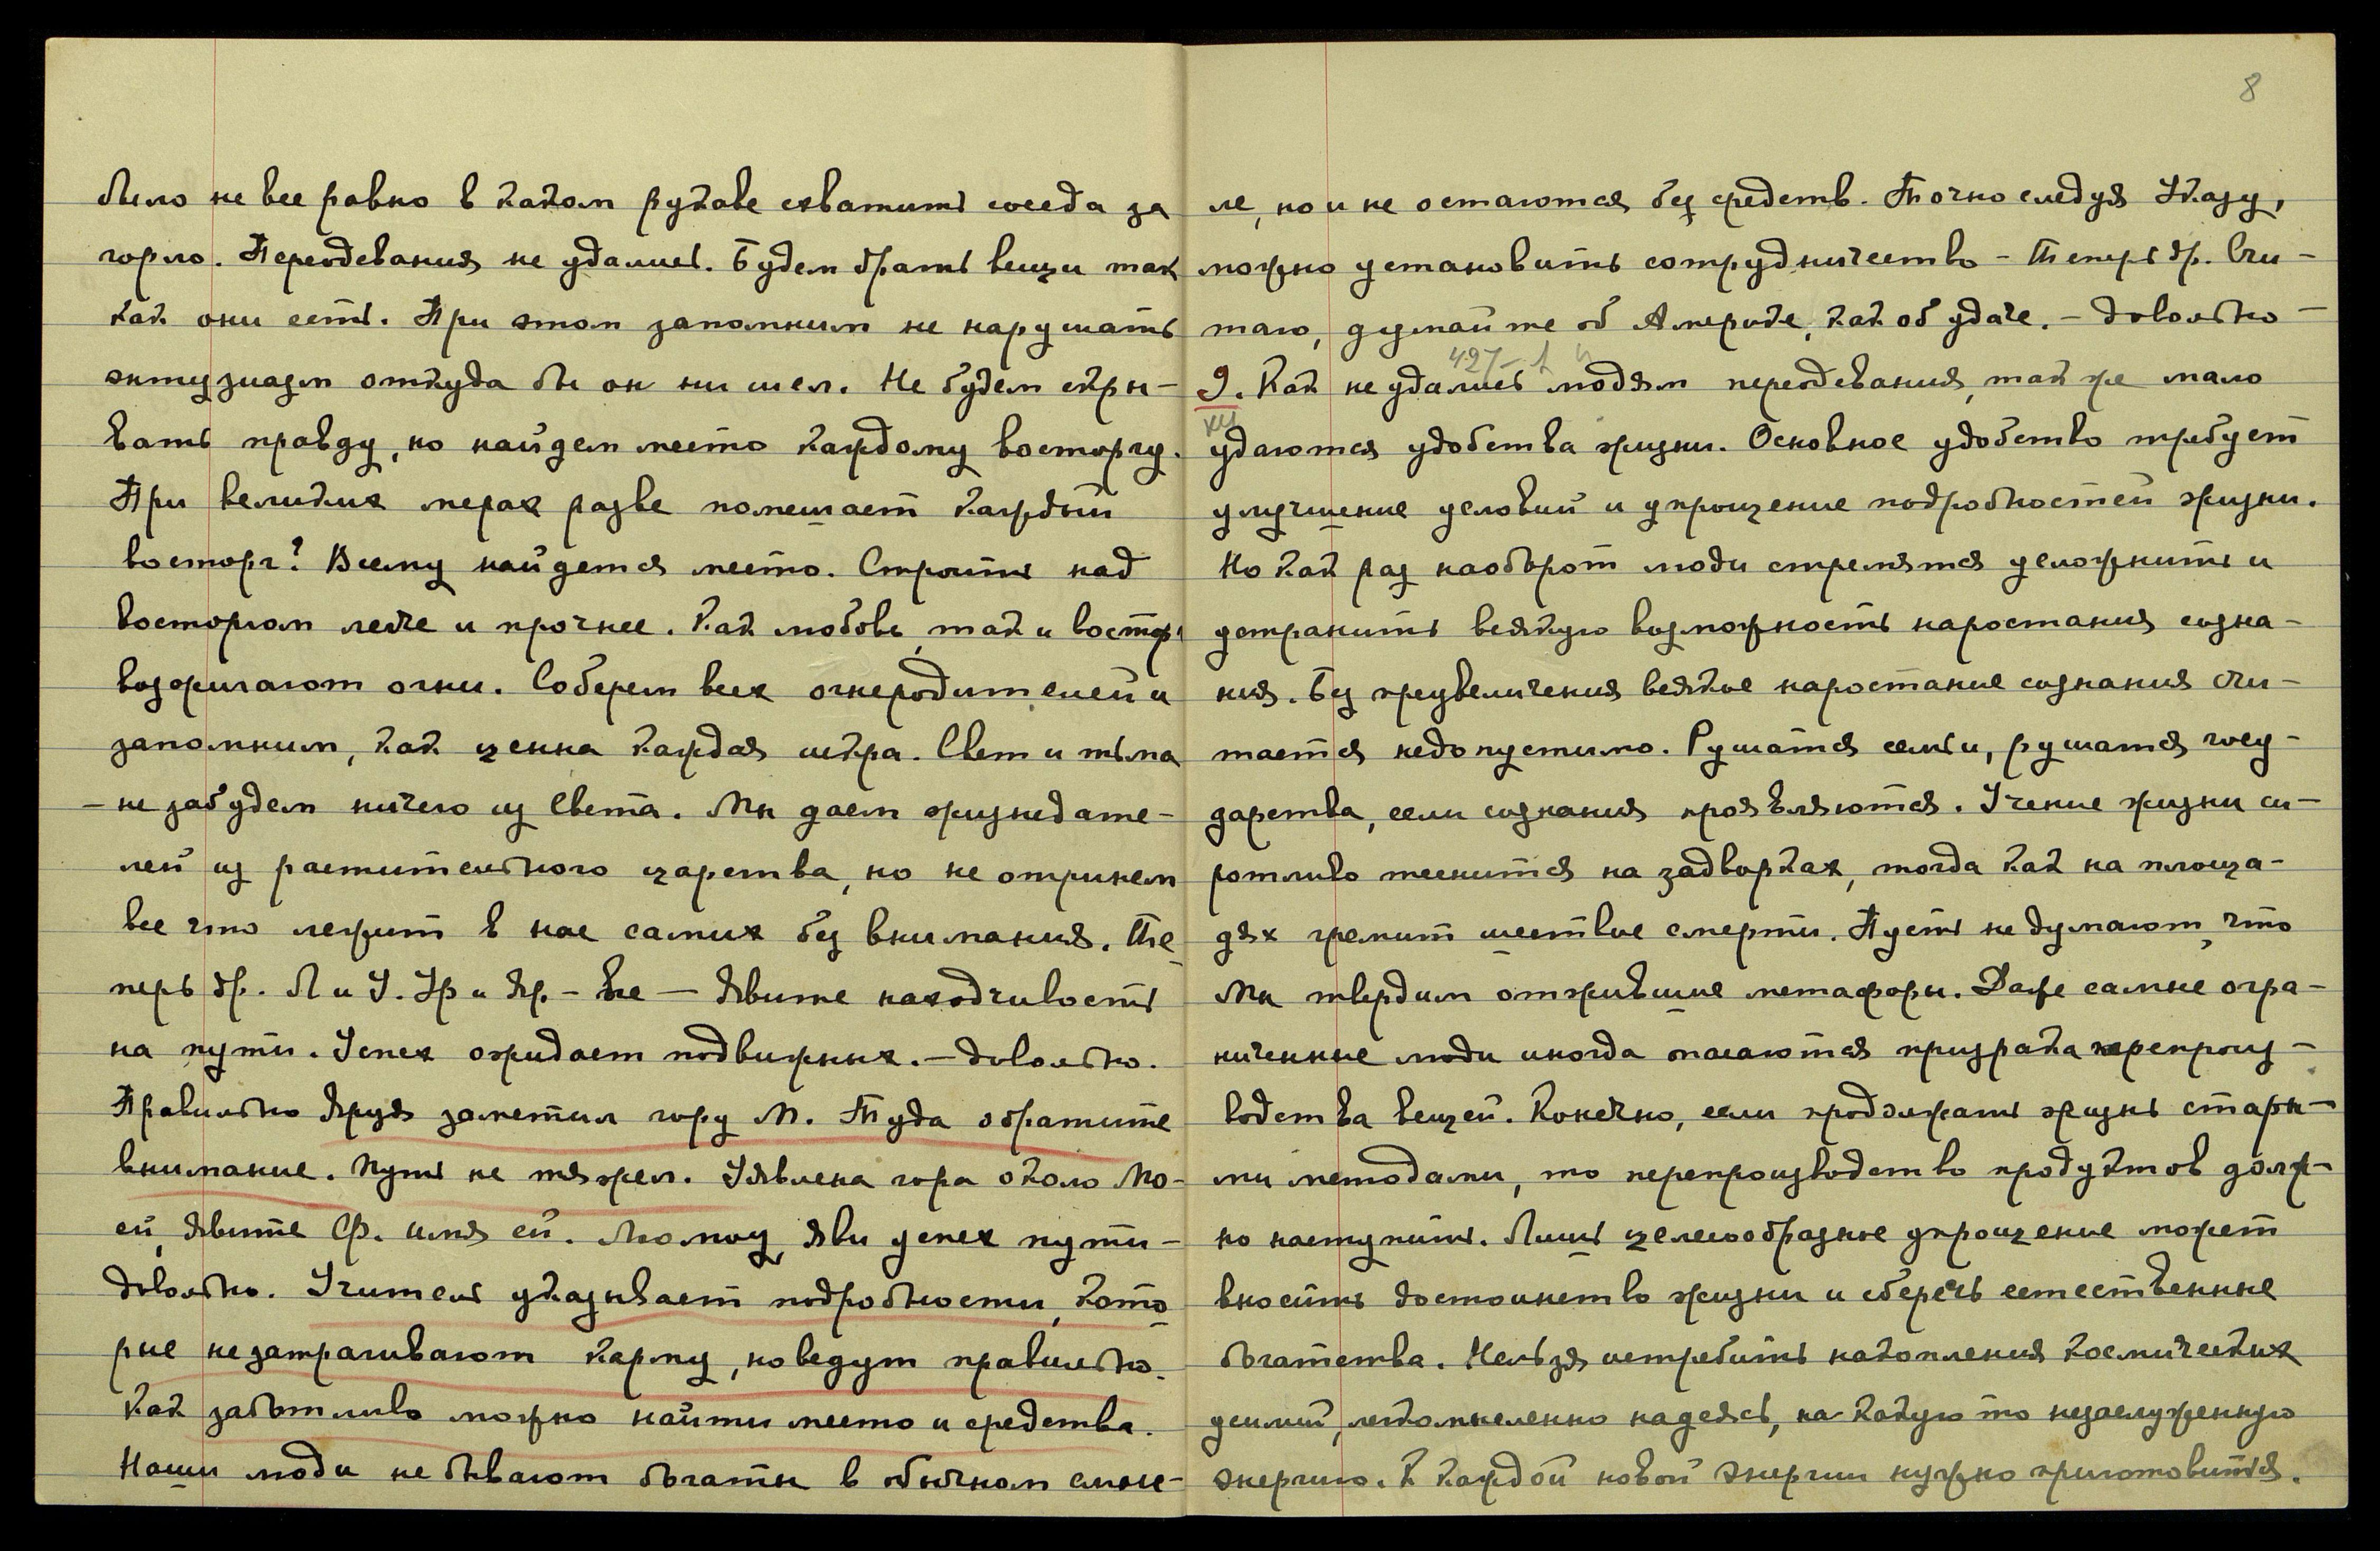 было не все равно в каком рукаве схватить соседа за
горло. Переодевания не удались. Будем брать вещи так
как они есть. При этом запомним не нарушать
энтузиазм откуда бы он ни шел. Не будем скры-
вать правду, но найдем место каждому восторгу.
При великих мерах разве помешает каждый
восторг? Всему найдется место. Строить над
восторгом легче и прочнее. Как любовь, так и восторг
возжигают огни. Соберем всех огнеродителей и
запомним, как ценна каждая искра. Свет и тьма
– не забудем ничего из Света. Мы даем жизнедате-
лей из растительного царства, но не отринем
все что лежит в нас самих без внимания. Те-
перь др. Л и У. Ур и Яр. – все – Явите находчивость
на пути. Успех ожидает подвижных. – Довольно.
Правильно Яруя заметил гору М. Туда обратите
внимание. Путь не тяжел. Уявлена гора около Мо-
ей, явите Ф. имя ей. Люмоу, яви успех пути –
довольно. Учитель указывает подробности, кото-
рые не затрагивают карму, но ведут правильно.
Как заботливо можно найти место и средства.
Наши люди не бывают богаты в обычном смыс-
8
ле, но и не остаются без средств. Точно следуя Указу,
можно установить сотрудничество – Теперь др. Счи-
таю, думайте об Америке, как об удаче. – Довольно –
427–
9. Как не удались людям переодевания, так же мало
удаются удобства жизни. Основное удобство требует
улучшение условий и упрощение подробностей жизни.
Но как раз наоборот люди стремятся усложнить и
устранить всякую возможность наростания созна-
ния. Без преувеличения всякое наростание сознания счи-
тается недопустимо. Рушатся семьи, рушатся госу-
дарства, если сознания проявляются. Учение жизни си-
ротливо теснится на задворках, тогда как на площа-
дях гремит шествие смерти. Пусть не думают, что
Мы твердим отжившие метафоры. Даже самые огра-
ниченные люди иногда опасаются призрака перепроиз-
водства вещей. Конечно, если продолжать жизнь стары-
ми методами, то перепроизводство продуктов долж-
но наступить. Лишь целесообразные упрощение может
вносить достоинство жизни и сберечь естественные
богатства. Нельзя истребить накопления космических
усилий, легкомысленно надеясь, на какую то незаслуженную
энергию. К каждой новой энергии нужно приготовиться.